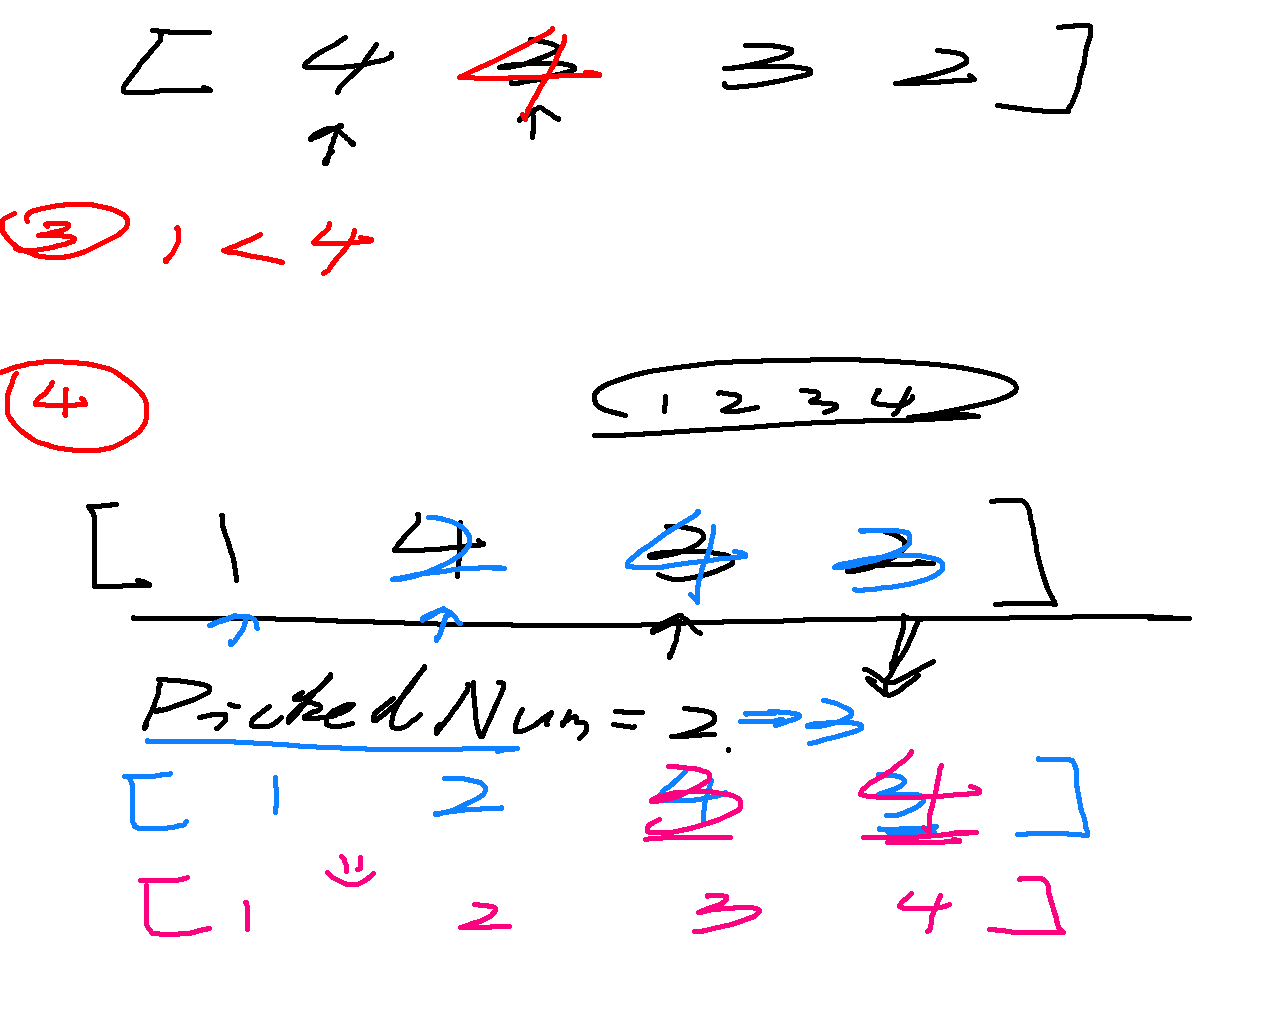 [ 4 4 3 2 ]
3 1 < 4
4
1 2 3 4
[ 1 2 4 3 ]
PickedNum = 2. ⇒ 3
[ 1 2 3 4 ]
[ 1 2 3 4 ]